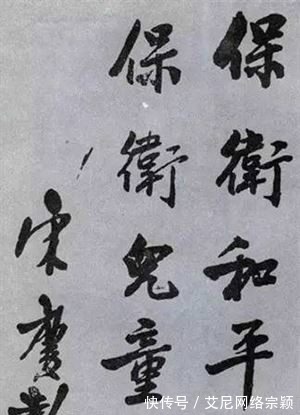 保衛和平
保衛兒童
宋慶齡
快传号/艾尼网络宗颖